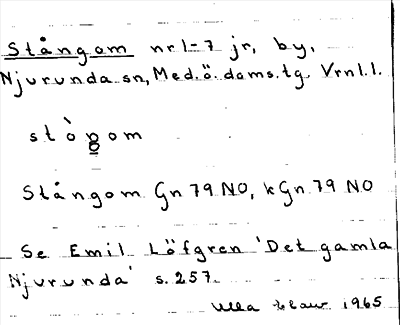 Stångom nr 1-7 jr, by.
Njurunda sn, Med.ö. doms.tg. Vrnl.l.
stògom
Stångom Gn 79 NO, kGn 79 NO
Se Emil Löfgren 'Det gamla
Njurunda' s. 257.
Ulla 1965